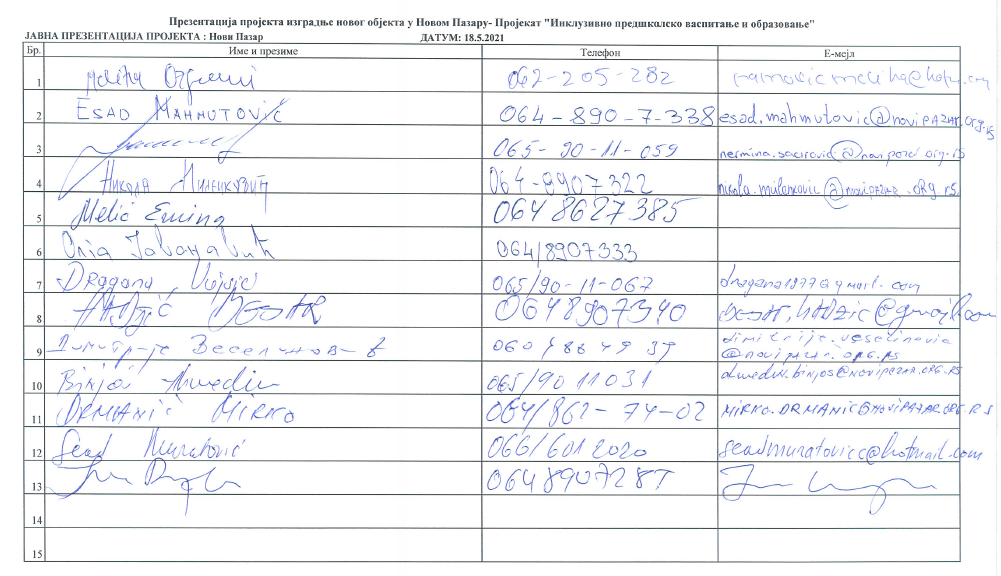 Презентација пројекта изградње новог објекта у Новом Пазару- Пројекат "Инклузивно предшколско васпитање и образовање"
ЈАВНА ПРЕЗЕНТАЦИЈА ПРОЈЕКТА : Нови Пазар ДАТУМ: 18.5.2021
Бр. Име и презиме Телефон Е-мејл
1 062-205-282
2 ESAD MAHMUTOVIĆ 064-890-7-338 esad.mahmutovic@novipazar.org.rs
3 065-90-11-059 nermina.sacirovic@novipazar.org.rs
4 Никола 064-8907322 nikola.milenkovic@novipazar.org.rs
5 Melić Emina 064 8627385
6 064/8907333
7 Dragana 065/90-11-067 dragana1977@gmail.com
8 064 8907340
9 Димитрије Веселинов 060 dimitrije.veselinovic
@novipazar.org.rs
10 065/90 11031
11 DRMANIĆ MIRKO 064/862-74-02 MIRKO.DRMANIC@NOVIPAZAR.ORG.RS
12 Sead Muratović 066/601 2020 seadmuratovicc@hotmail.com
13 064 8907287
14
15